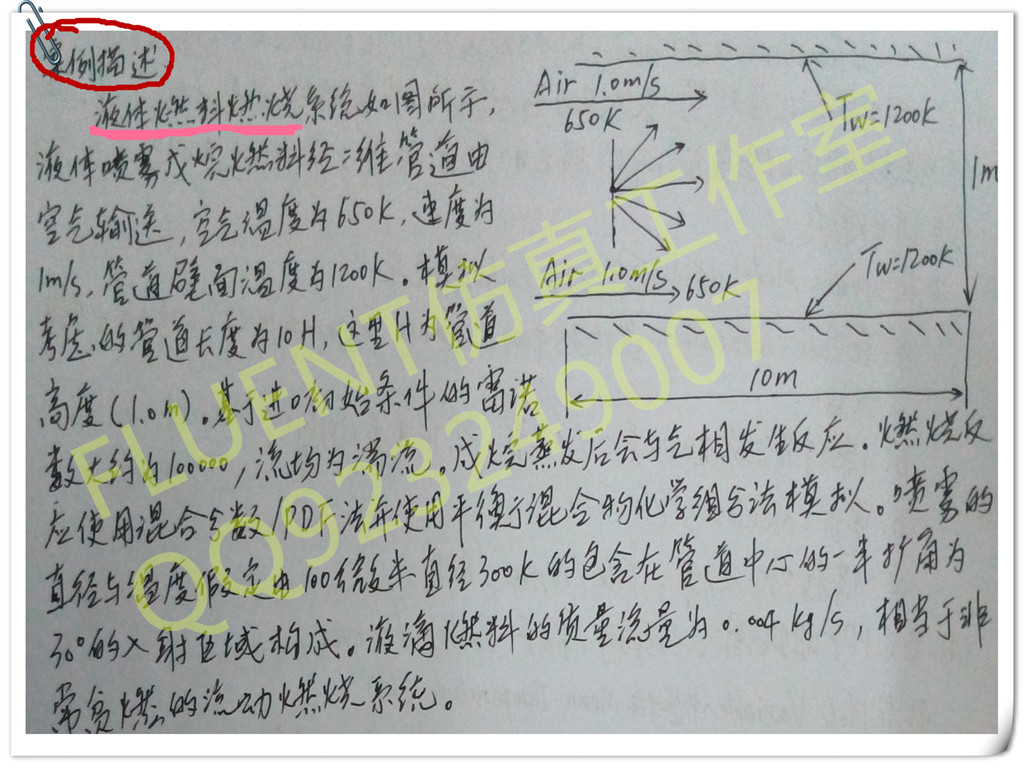 案例描述
液体燃料燃烧系统如图所示,
液体喷雾戊烷燃料经二维管道由
空气输送,空气温度为650K,速度为
1m/s,管道壁面温度为1200K。模拟
考虑的管道长度为10H,这里H为管道
高度(1.0m)。基于进口初始条件的雷诺
数大约为100000,流均为湍流。戊烷蒸发后会与气相发生反应。燃烧反
应使用混合分数/PDF法并使用平衡混合物化学组合法模拟。喷雾的
直径与温度假定由100微米直径300K的包含在管道中心的一半扩角为
30°的入射区域构成。液滴燃料的质量流量为0.004kg/s,相当于非
常贫燃的流动燃烧系统。
Air 1.0m/s
650K
Tw=1200K
1m
Tw=1200K
Air 1.0m/s 650K
10m
FLUENT仿真工作室
QQ923249007